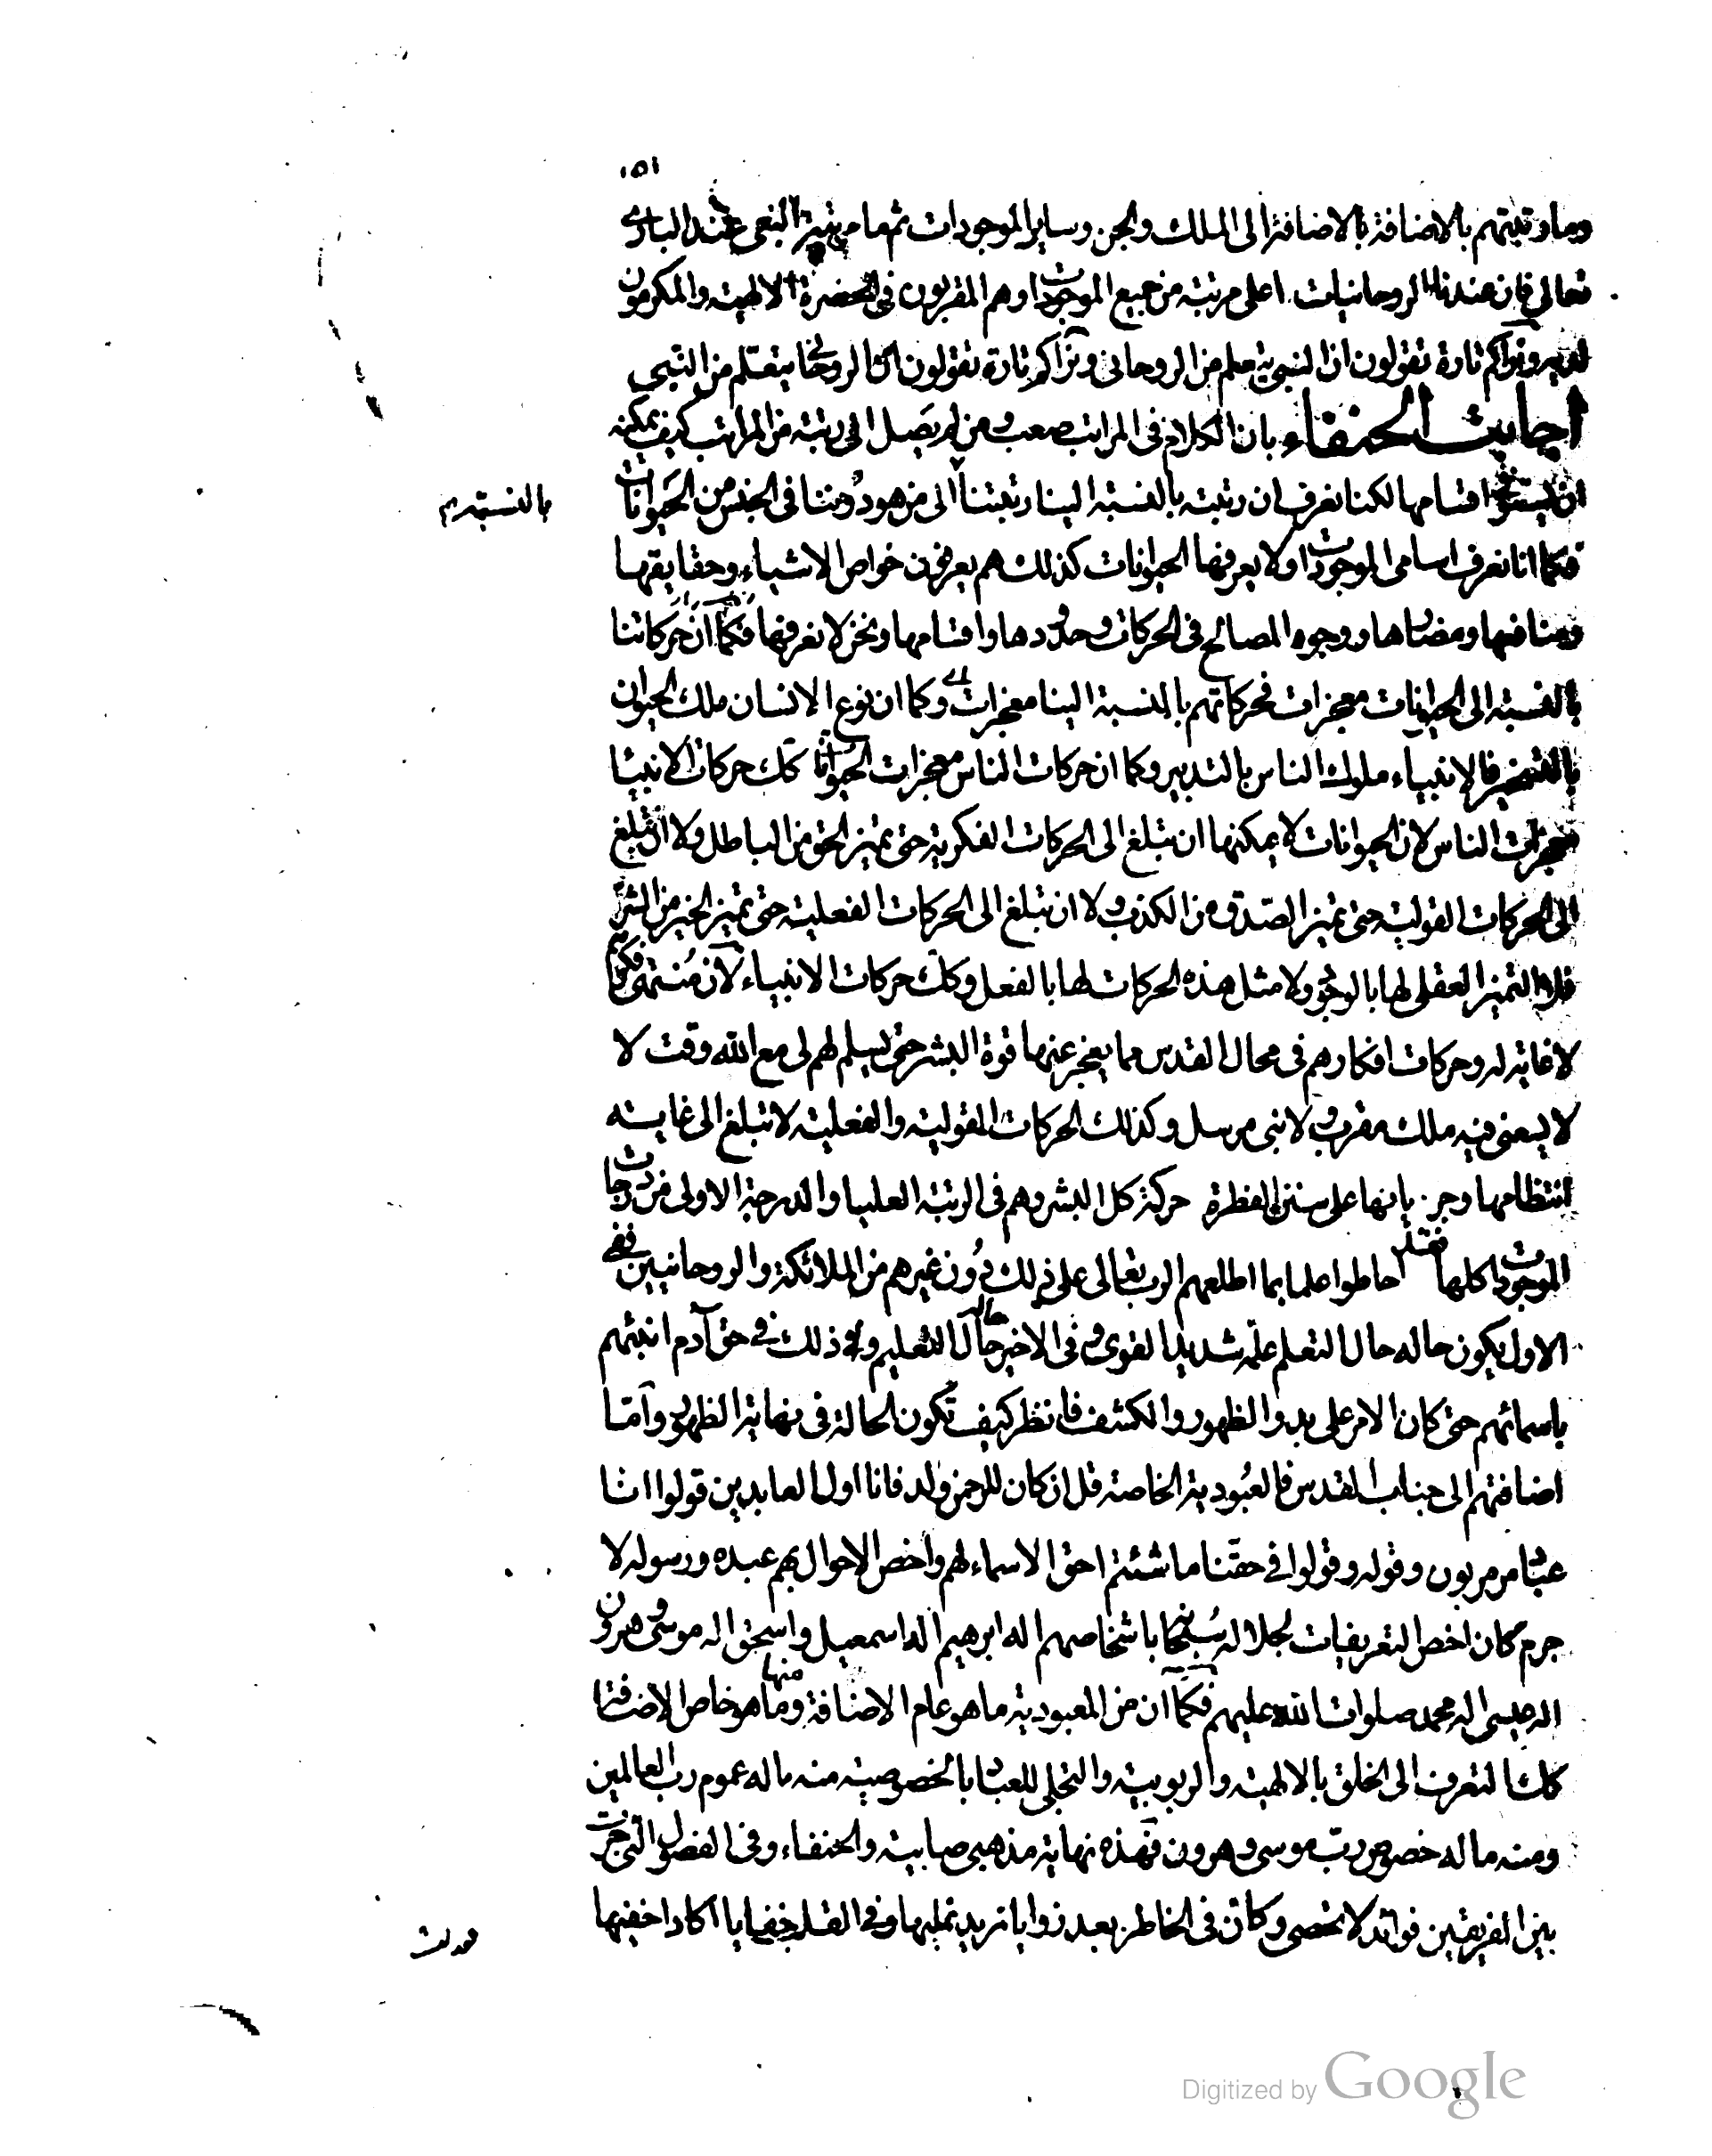 ١٥١
وما رتبتهم بالاضافة بالاضافة الى الملك والجن وساير الموجودات ثم ما مرتبة النبى عند البارى
تعالى فان عندنا الروحانيات اعلى مرتبة من جميع الموجودات وهم المقربون فى الحضرة الالهية والمكرمون
لديه ونراكم تارة تقولون ان النبى يتعلم من الروحانى ونراكم تارة تقولون ان الروحانى يتعلم من النبى
اجابت الحنفاء بان الكلام فى المراتب صعب ومن لم يصل الى رتبة من المراتب كيف يمكنه
ان يستوفى اقسامها لكنا نعرف ان رتبته بالنسبة الينا رتبتنا الى من هو دوننا فى الجنس من الحيوانات
بالنسبة
فكما انا نعرف اسامى الموجودات ولا يعرفها الحيوانات كذلك هم يعرفون خواص الاشياء وحقايقها
ومنافعها ومضارها ووجوه المصالح فى الحركات وحدودها واقسامها ونحن لا نعرفها فكما ان حركاتنا
بالنسبة الى الحيوانات معجزات فحركاتهم بالنسبة الينا معجزات وكما ان نوع الانسان ملك الحيوان
بالتسخير فالانبياء ملوك الناس بالتدبير وكما ان حركات الناس معجزات الحيوانات كك حركات الانبيا
معجزات الناس لان الحيوانات لا يمكنها ان تبلغ الى الحركات الفكرية حتى تميز الحق من الباطل ولا ان تبلغ
الى الحركات القولية حتى تميز الصدق من الكذب ولا ان تبلغ الى الحركات الفعلية حتى تميز الخير من الشر
فلا التميز العقلى لها بالوجود ولا مثل هذه الحركات لها بالفعل وكك حركات الانبياء لان منتهى فكرهم
لا غاية له وحركات افكارهم فى محال القدس مما يعجز عنها قوة البشر حتى يسلم لهم لى مع الله وقت لا
لا يسعنى فيه ملك مقرب ولا نبى مرسل وكذلك الحركات القولية والفعلية لا تبلغ الى غاية
انتظامها وجريانها على سنن الفطرة حركة كل البشر وهم فى الرتبة العليا والدرجة الاولى من درجات
الموجودات كلها فقد احاطوا علما بما اطلعهم الرب تعالى على ذلك دون غيرهم من الملائكة والروحانيين ففى
الاول يكون حاله حال التعلم علمه شديد القوى وفى الاخير حاله حال التعليم وذلك فى حق آدم انبئهم
باسمائهم حتى كان الامر على بدو الظهور والكشف فانظر كيف تكون الحالة فى نهاية الظهور واما
اضافتهم الى جناب القدس فالعبودية الخاصة قل ان كان للرحمن ولد فانا اول العابدين قولوا انا
عباد مربوبون وقوله وقولوا فى حقنا ما شئتم احق الاسماء لهم واخص الاحوال بهم عبده ورسوله لا
جرم كان اخص التعريفات لجلاله سبحانه باشخاصهم اله ابرهيم اله اسمعيل واسحق اله موسى وهرون
اله عيسى اله محمد صلوات الله عليهم فكما ان من العبودية ما هو عام الاضافة ومنها ما هو خاص الاضافة
كك التعرف الى الخلق بالالهية والربوبية والتجلى للعباد بالخصوصية منه ما له عموم رب العالمين
ومنه ما له خصوص رب موسى وهرون فهذه نهاية مذهبى صابية والحنفاء وفى الفصول التى جرت
بين الفريقين فوائد لا تحصى وكان فى الخاطر بعد زوايا نريد نمليها وفى القلم خفايا اكاد اخفيها